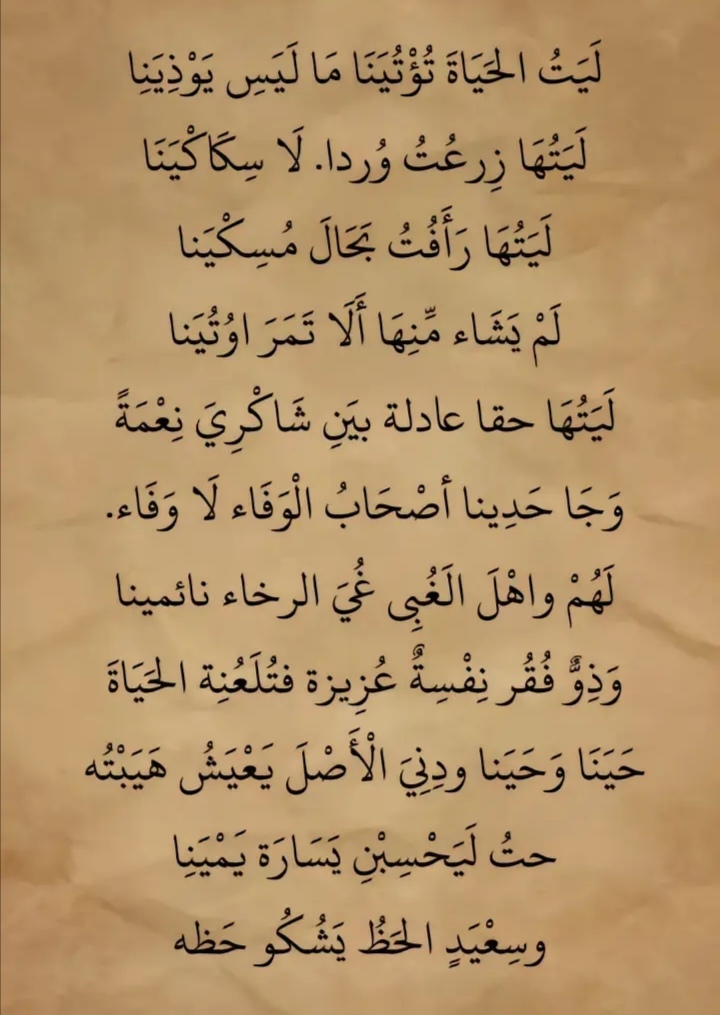 لَيَتُ الحَيَاةَ تُؤْتُيَنَا مَا لَيَسِ يَوْذِيَنِا
لَيَتُهَا زِرعُتُ وُردا. لَا سِكَاكْيَنَا
لَيَتُهَا رَأَفُتُ بَحَالَ مُسِكْيَنا
لَمْ يَشَاء مِّنِهَا أَلَا تَمَرَ اوُتُيَنا
لَيَتُهَا حقا عادلة بيَنِ شَاكْرِيَ نِعْمَةً
وَجَا حَدِينا أصْحَابُ الْوَفَاء لَا وَفَاء.
لَهُمْ واهْلَ الَغُبِى غُيَ الرخاء نائمينا
وَذِوٌّ فُقُر نِفْسِةٌ عُزِيزة فتُلَعُنِة الحَيَاةَ
حَيَنَا وَحَيَنا ودِنِيَ الْأَصْلَ يَعْيَشُ هَيَبْتُه
حتُ لَيَحْسِبْنِ يَسَارَة يَمْيَنِا
وسِعْيَدٍ الحَظُ يَشُكُو حَظه